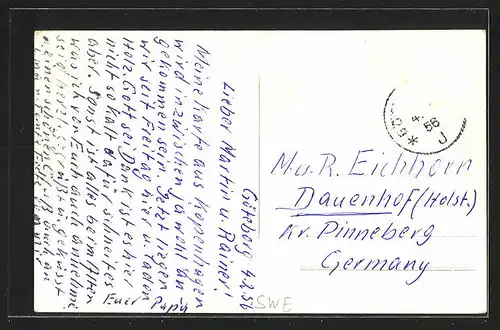 Göteborg 4.2.56
Lieber Martin u. Rainer!
Meine Karte aus Kopenhagen
wird inzwischen ja wohl an-
gekommen sein. Jetzt liegen
wir seit Freitag hier u. laden
Holz. Gott sei Dank ist es hier
nicht so kalt dafür schneit es
aber. Sonst ist alles beim Alten
was ich von Euch auch annehme
Seid herzlichst u. geküsst
einen schönen Gruß auch an
Euer Papa
4.
56
J
M. u. R. Eichhorn
Dauenhof (Holst.)
Kr. Pinneberg
Germany
SWE